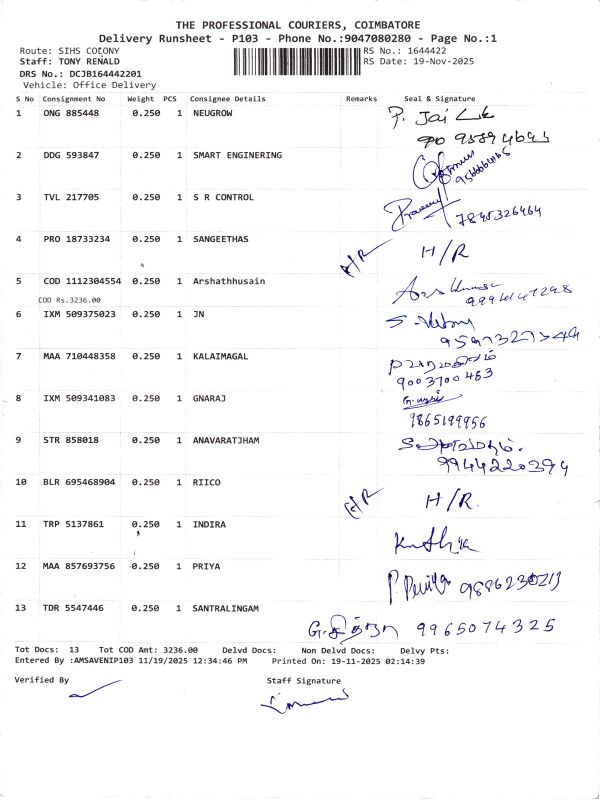 THE PROFESSIONAL COURIERS, COIMBATORE
Delivery Runsheet - P103 - Phone No.:9047080280 - Page No.:1
Route: SIHS COLONY RS No.: 1644422
Staff: TONY RENALD RS Date: 19-Nov-2025
DRS No.: DCJB164442201
Vehicle: Office Delivery
S No Consignment No Weight PCS Consignee Details Remarks Seal & Signature
1 ONG 885448 0.250 1 NEUGROW P. Jai
2 DDG 593847 0.250 1 SMART ENGINERING
3 TVL 217705 0.250 1 S R CONTROL 7845326464
4 PRO 18733234 0.250 1 SANGEETHAS H/R H/R
5 COD 1112304554 0.250 1 Arshathhusain
COD Rs.3236.00
6 IXM 509375023 0.250 1 JN
7 MAA 710448358 0.250 1 KALAIMAGAL
9003700453
8 IXM 509341083 0.250 1 GNARAJ
9865199956
9 STR 858018 0.250 1 ANAVARATJHAM
9944220394
10 BLR 695468904 0.250 1 RIICO H/R H/R.
11 TRP 5137861 0.250 1 INDIRA
12 MAA 857693756 0.250 1 PRIYA
13 TDR 5547446 0.250 1 SANTRALINGAM
G.சித்ரா 9965074325
Tot Docs: 13 Tot COD Amt: 3236.00 Delvd Docs: Non Delvd Docs: Delvy Pts:
Entered By :AMSAVENIP103 11/19/2025 12:34:46 PM Printed On: 19-11-2025 02:14:39
Verified By Staff Signature